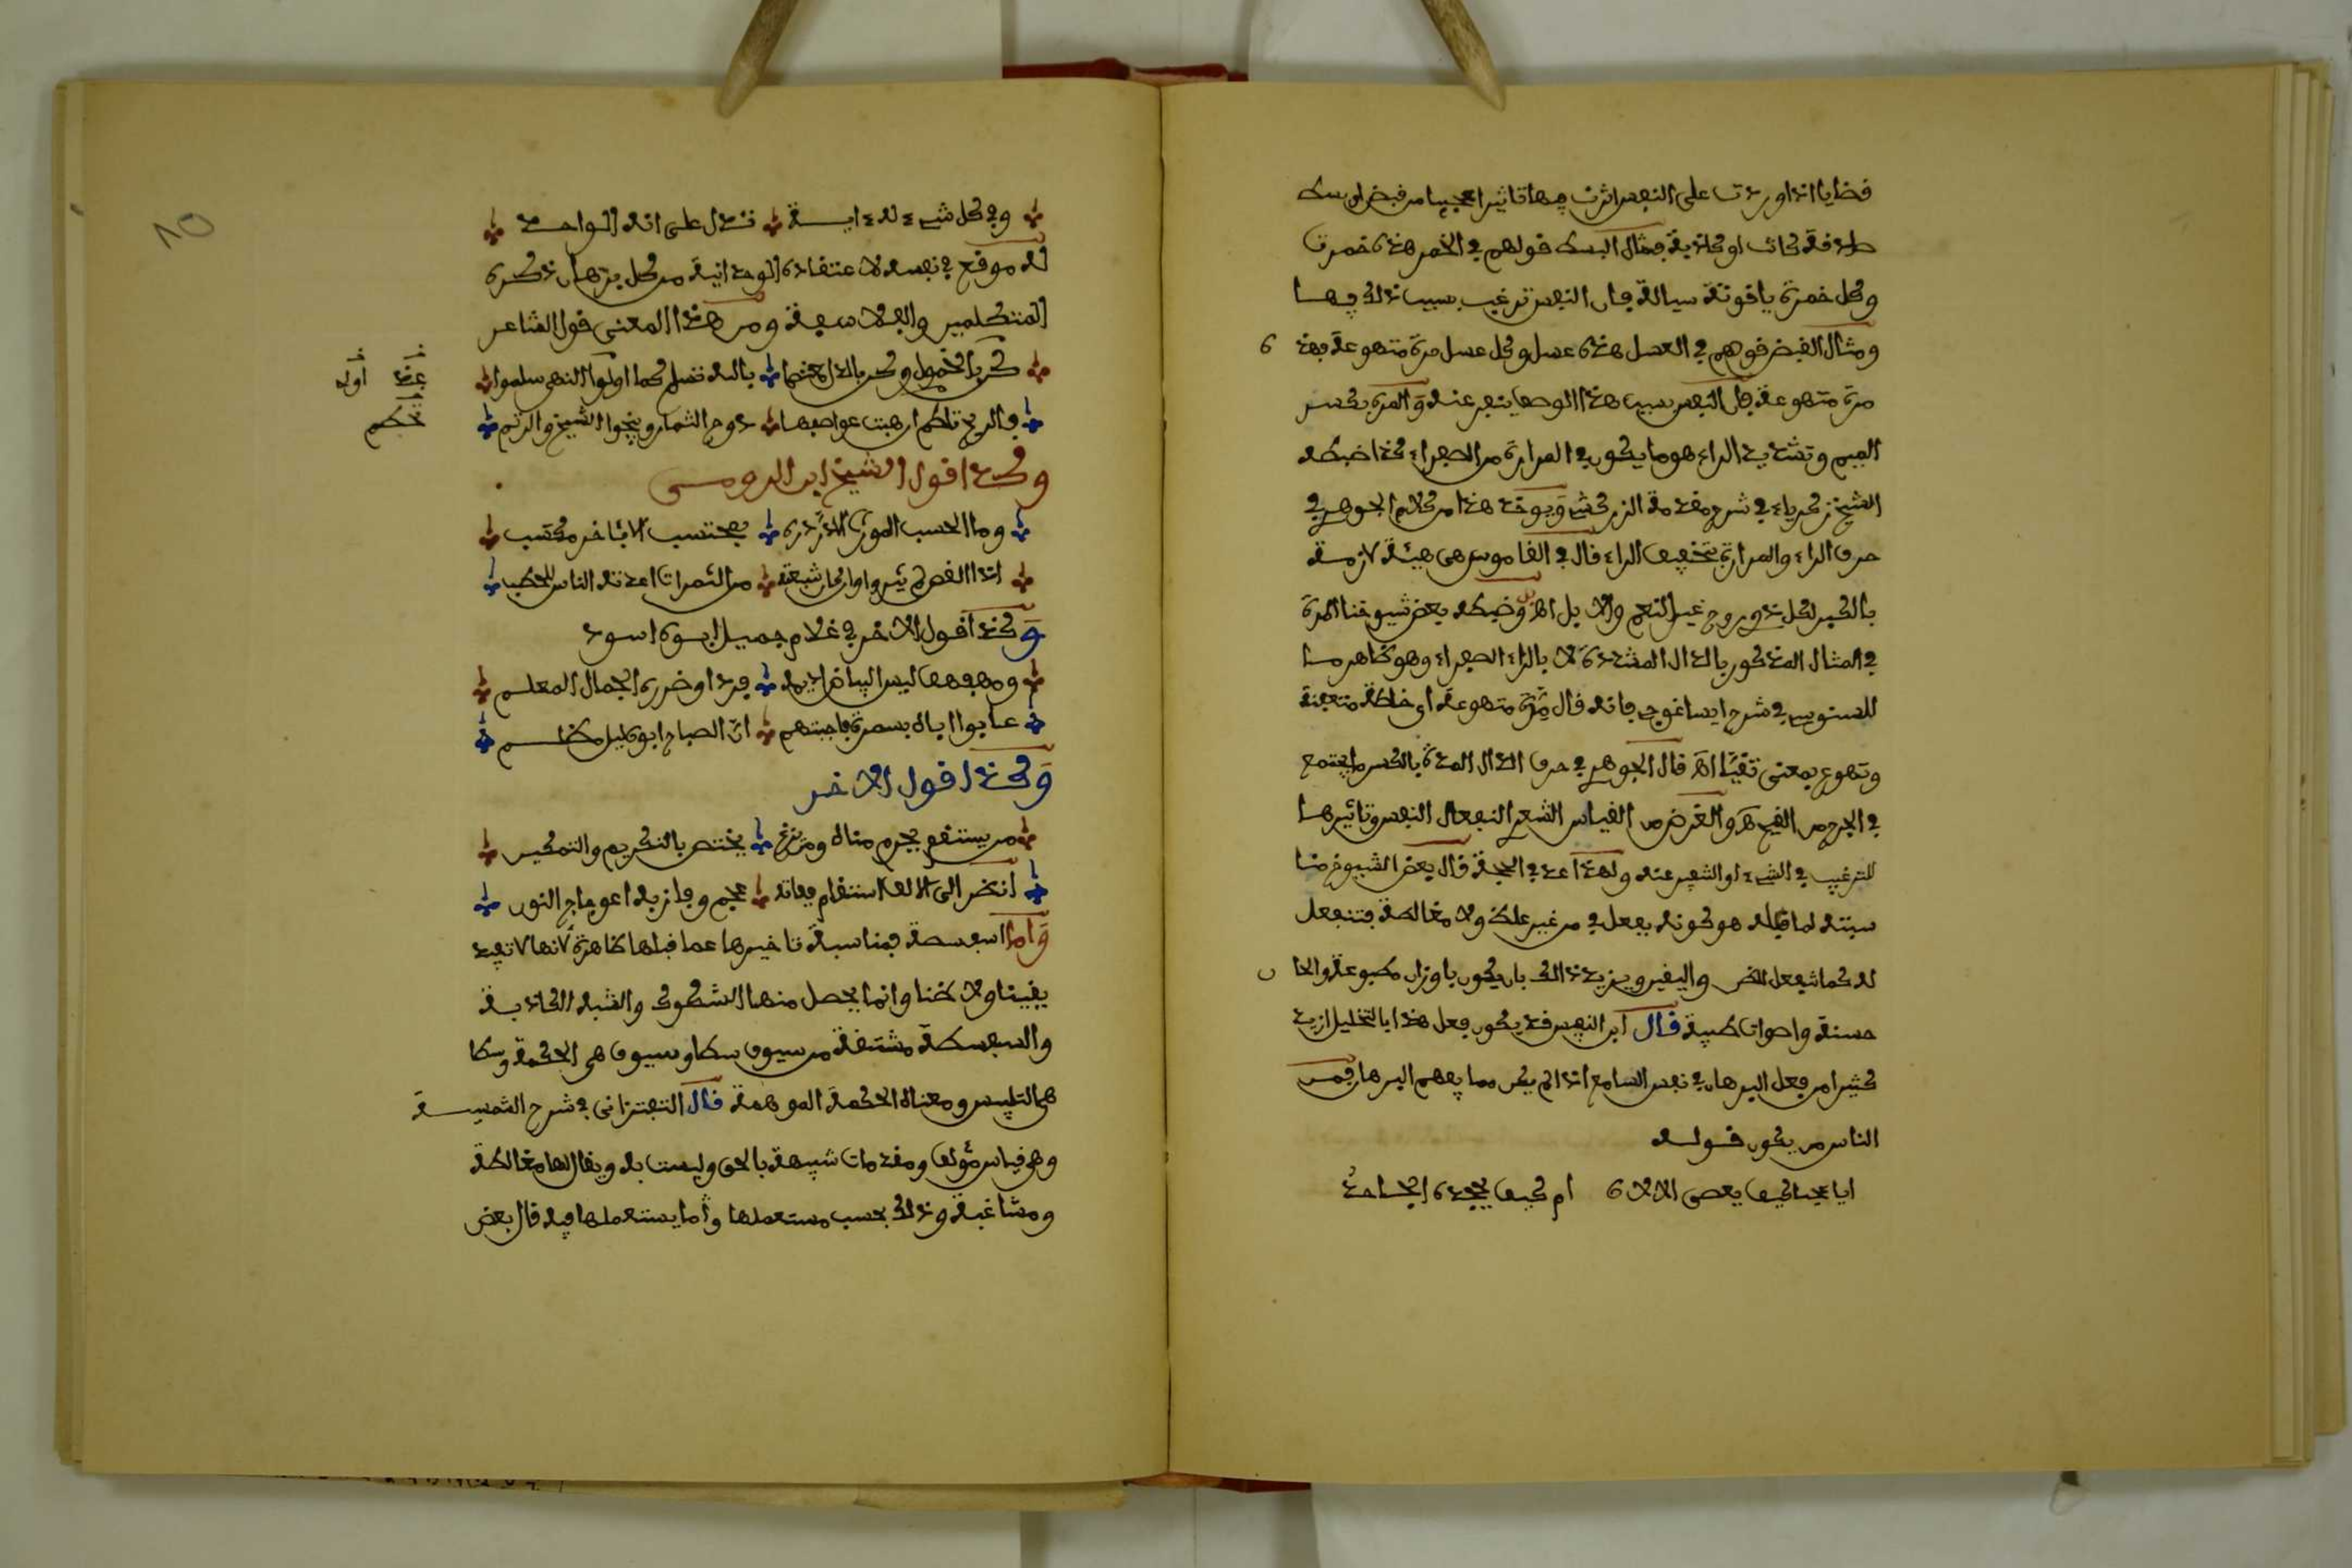 قضايا اذا وردت على النفس اثرت فيها تاثيرا عجيبا من قبض او بسط
صادقة كانت او كاذبة فمثال البسط قولهم في الخمر هذه خمرة
وكل خمرة ياقوتة سيالة فان النفس ترغب بسبب ذلك فيها
ومثال القبض قولهم في العسل هذه عسل وكل عسل مرة متهوعة فهذه
مرة متهوعة فان النفس بسبب هذا الوصف ينفر عنه والمرة بكسر
الميم وتشديد الراء هو ما يكون في المرارة من الصفراء كذا ضبطه
الشيخ زكرياء في شرح مقدمة الزركشي ويوخذ هذا من كلام الجوهري في
حرف الراء والمرارة بتخفيف الراء قال في القاموس هي هيئة لازمة
بالكبد لكل ذي روح غير النعم والابل اه وضبطه بعض شيوخنا المرة
في المثال المذكور بالدال المشددة لا بالراء الصفراء وهو ظاهر ما
للسنوسي في شرح ايساغوجي فانه قال مرة متهوعة اي خلطة متعفنة
وتهوع بمعنى تقيا اه قال الجوهري في حرف الدال المدة بالكسر ما يجتمع
في الجرح من القيح اه والغرض من القياس الشعري انفعال النفس وتاثيرها
للترغيب في الشيء او التنفير عنه ولهذا عد في الحجة قال بعض الشيوخ منا
سبته لما قبله هو كونه يفعل في من غير علم ولا مغالطة فتنفعل
له كما تنفعل للظن واليقين ويزيد ذالك بان يكون باوزان مطبوعة والحا
ن
حسنة واصوات طيبة قال ابن النفيس قد يكون فعل هذا بالتخليل ازيد
كثيرا من فعل البرهان في نفس السامع اذا لم يكن مما يفهم البرهان فمن
الناس من يكون قوله
ايا عجبا كيف يعصى الالاه ام كيف يجحده الجاحد
وفي كل شيء له ءاية تدل على انه الواحد
له موقع في نفسه لاعتقاده الوحدانية من كل برهان ذكره
المتكلمين والفلاسفة ومن هذا المعنى قول الشاعر
كن بالخمول وكن بالذل معتصما بالله تسلم كما اولوا النهى سلموا
عند اوله
فالريح تحطم ان هبت عواصفها دوح الثمار وينجوا الشيح والرتم
تحطم
وكذا قول الشيخ ابن الرومي
وما الحسب الموروث لا در دره بمحتسب الا بئاخر مكتسب
اذا الغصن لم يثمر وان كان شعبة من الثمرات اعتده الناس للحطب
وكذا قول الاخر في غلام جميل ابوه اسود
عابوا اباه بسمرة فاجبتهم ان الصباح ابوه ليل مظلم
وكذا قول الاخر
من يستقم يحرم مناه ومن يزغ يختص بالتكريم والتمكين
انظر الى الالف استقام ففاته عجم وفاز به اعوجاج النون
واما سفسطة فمناسبة تاخيرها عما قبلها ظاهرة لانها لا تفيد
يقينا ولا ظنا وانما يحصل منها الشكوك والشبه الكاذبة
والسفسطة مشتقة من سيوف سطا وسيوف هي الحكمة وسطا
هي التلبيس ومعناه الحكمة المموهة قال التفتزاني في شرح الشمسية
وهي قياس مؤلف ومقدمات شبيهة بالحق وليست به ويقال لها مغالطة
ومشاغبة وذلك بحسب مستعملها وما يستعملها فيه قال بعض
10